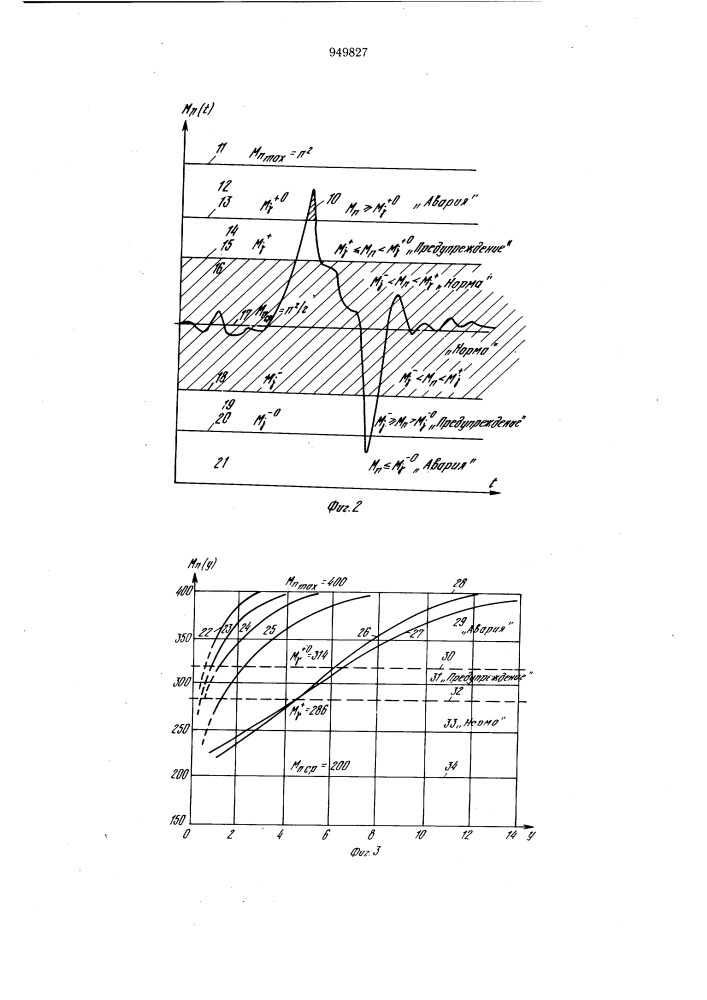 949827
Mп(t)
11 Mп max = п²
12
13 Mᵧ⁺⁰ 10 Mп ≥ Mᵧ⁺⁰ „Авария"
14
15 Mᵧ⁺ Mᵧ⁺ ≤ Mп < Mᵧ⁺⁰ „Предупреждение"
16 Mᵧ⁻ < Mп < Mᵧ⁺ „Норма"
17 Mп ср = п²/2
„Норма"
18 Mᵧ⁻ Mᵧ⁻ < Mп < Mᵧ⁺
19
20 Mᵧ⁻⁰ Mᵧ⁻ ≥ Mп > Mᵧ⁻⁰ „Предупреждение"
21 Mп ≤ Mᵧ⁻⁰ „Авария"
t
Фиг. 2
Mп(y)
400 Mп max = 400 28
22 23 24 25 26 27 29 „Авария"
350
Mᵧ⁺⁰ = 314 30
300 31 „Предупреждение"
32
Mᵧ⁺ = 286
33 „Норма"
250
Mп ср = 200 34
200
150
0 2 4 6 8 10 12 14 y
Фиг. 3